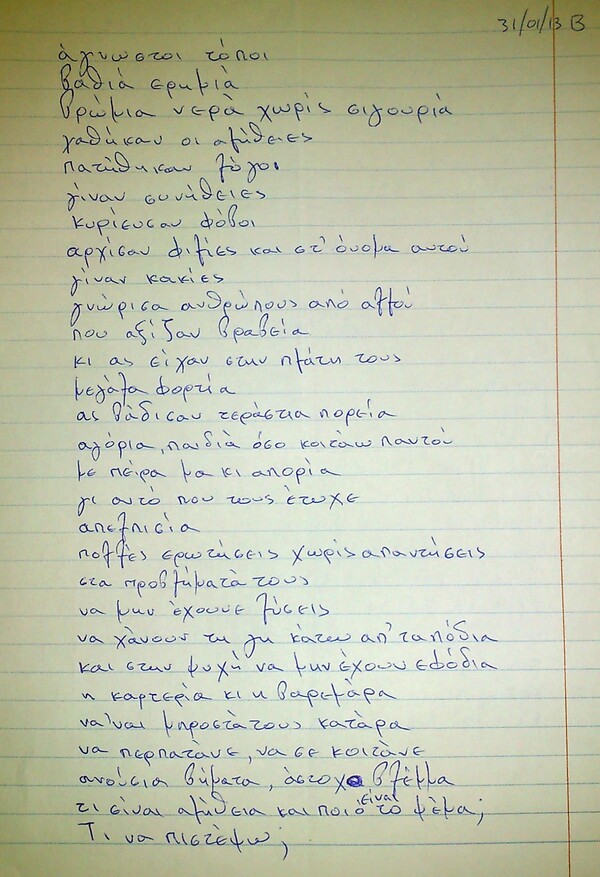 31/01/13 B
άγνωστοι τόποι
βαθιά ερημιά
βρώμια νερά χωρίς σιγουριά
χαθήκαν οι αλήθειες
πατήθηκαν λόγοι
γίναν συνήθειες
κυρίευσαν φόβοι
αρχίσαν φιλίες και στ' όνομα αυτού
γίναν κακίες
γνώρισα ανθρώπους από αλλού
που αξίζαν βραβεία
κι ας είχαν στην πλάτη τους
μεγάλα φορτία
ας βάδισαν τεράστια πορεία
αγόρια, παιδιά όσο κοιτάω παντού
με πείρα μα κι απορία
γι αυτό που τους έτυχε
απελπισία
πολλές ερωτήσεις χωρίς απαντήσεις
στα προβλήματά τους
να μην έχουνε λύσεις
να χάνουν τη γη κάτω απ' τα πόδια
και στην ψυχή να μην έχουν εφόδια
η καρτερία κι η βαρεμάρα
να'ναι μπροστά τους κατάρα
να περπατάνε, να σε κοιτάνε
ανούσια βήματα, άστοχο βλέμμα
τι είναι αλήθεια και ποιο είναι το ψέμα;
Τι να πιστέψω;